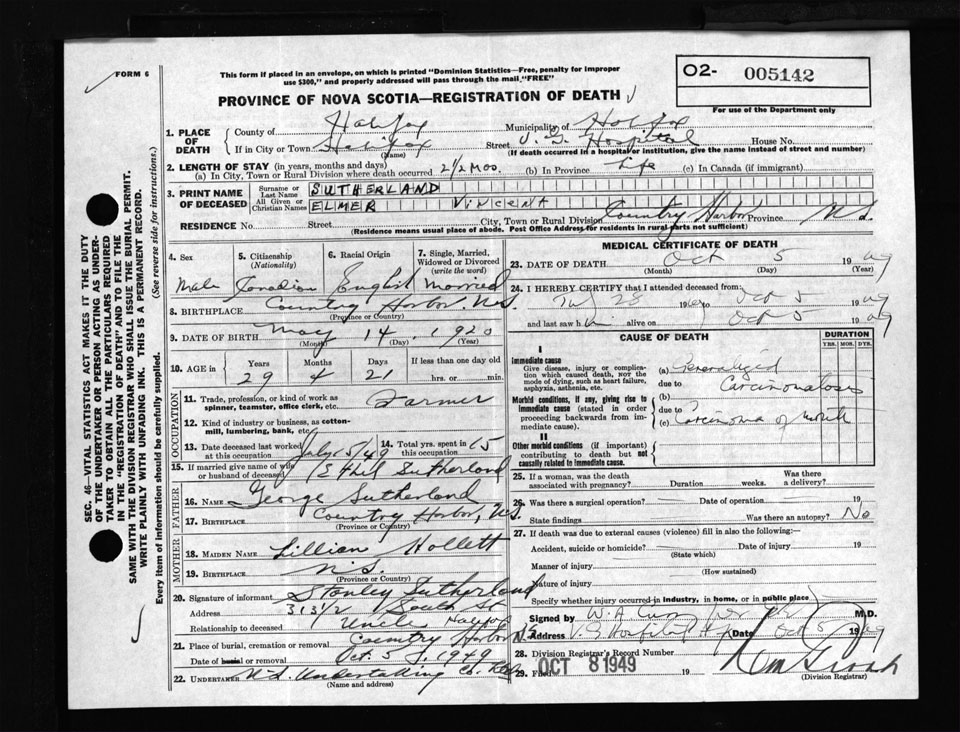 FORM 6
This form if placed in an envelope, on which is printed "Dominion Statistics—Free, penalty for improper
use $300," and properly addressed will pass through the mail "FREE"
O2- 005142
For use of the Department only
PROVINCE OF NOVA SCOTIA—REGISTRATION OF DEATH
1. PLACE OF DEATH County of Halifax Municipality of Halifax
If in City or Town Halifax (Name) Street V. G. Hospital House No.
(If death occurred in a hospital or institution, give name instead of street and number)
2. LENGTH OF STAY (in years, months and days)
(a) In City, Town or Rural Division where death occurred 2 1/2 Mos. (b) In Province Life (c) In Canada (if immigrant)
3. PRINT NAME OF DECEASED Surname or Last Name SUTHERLAND
All Given or Christian Names ELMER VINCENT
RESIDENCE No. Street City, Town or Rural Division Country Harbor Province N.S.
(Residence means usual place of abode. Post Office Address for residents in rural parts not sufficient)
4. Sex 5. Citizenship (Nationality) 6. Racial Origin 7. Single, Married, Widowed or Divorced (write the word)
Male Canadian English Married
8. BIRTHPLACE Country Harbor, N.S.
(Province or Country)
9. DATE OF BIRTH May 14 1920
(Month) (Day) (Year)
10. AGE in Years Months Days If less than one day old
29 4 21 hrs. or min.
OCCUPATION
11. Trade, profession, or kind of work as spinner, teamster, office clerk, etc. Farmer
12. Kind of industry or business, as cotton-mill, lumbering, bank, etc.
13. Date deceased last worked at this occupation July 15/49 14. Total yrs. spent in this occupation 15
15. If married give name of wife or husband of deceased Ethel Sutherland
FATHER
16. NAME George Sutherland
17. BIRTHPLACE Country Harbor, N.S.
(Province or Country)
MOTHER
18. MAIDEN NAME Lillian Hollett
19. BIRTHPLACE N.S.
(Province or Country)
20. Signature of informant Stanley Sutherland
Address 313 1/2 South St Halifax
Relationship to deceased Uncle
21. Place of burial, cremation or removal Country Harbor N.S.
Date of burial or removal Oct. 5, 1949
22. UNDERTAKER N.S. Undertaking Co.
(Name and address)
MEDICAL CERTIFICATE OF DEATH
23. DATE OF DEATH Oct 5 1949
(Month) (Day) (Year)
24. I HEREBY CERTIFY that I attended deceased from:
28 19 to Oct 5 1949
and last saw him alive on Oct 5 1949
CAUSE OF DEATH DURATION
YRS. MOS. DYS.
I
Immediate cause
Give disease, injury or complication which caused death, not the mode of dying, such as heart failure, asphyxia, asthenia, etc.
(a) Generalized
due to Carcinomatosis
Morbid conditions, if any, giving rise to immediate cause (stated in order proceeding backwards from immediate cause).
(b)
due to
(c) Carcinoma of
II
Other morbid conditions (if important) contributing to death but not causally related to immediate cause.
25. If a woman, was the death associated with pregnancy? Duration weeks. Was there a delivery?
26. Was there a surgical operation? Date of operation 19
State findings Was there an autopsy? No
27. If death was due to external causes (violence) fill in also the following:
Accident, suicide or homicide? Date of injury 19
(State which)
Manner of injury
(How sustained)
Nature of injury
Specify whether injury occurred in industry, in home, or in public place
Signed by W. A. M.D.
Address V. G. Hospital Date Oct 5 1949
28. Division Registrar's Record Number
29. Filed OCT 8 1949
(Division Registrar)
SEC. 46—VITAL STATISTICS ACT MAKES IT THE DUTY
OF THE UNDERTAKER OR PERSON ACTING AS UNDER-
TAKER TO OBTAIN ALL THE PARTICULARS REQUIRED
IN THE "REGISTRATION OF DEATH" AND TO FILE THE
SAME WITH THE DIVISION REGISTRAR WHO SHALL ISSUE THE BURIAL PERMIT.
WRITE PLAINLY WITH UNFADING INK. THIS IS A PERMANENT RECORD.
Every item of information should be carefully supplied. (See reverse side for instructions.)